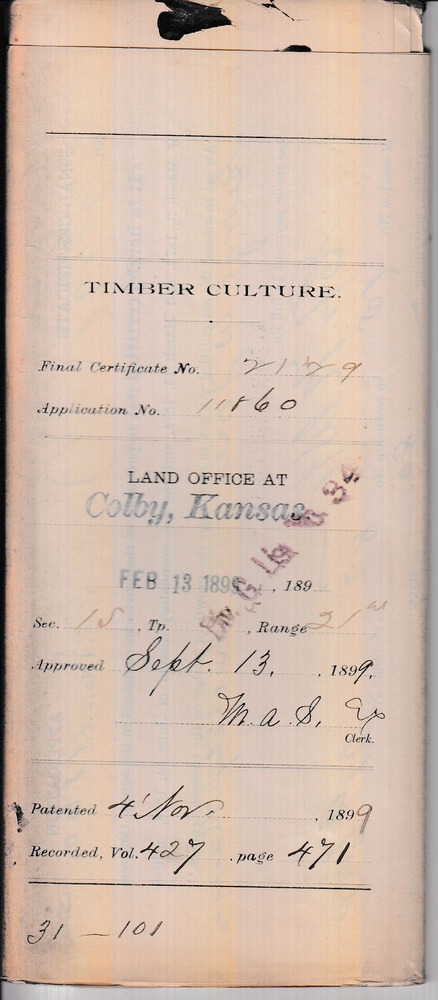 TIMBER CULTURE.
Final Certificate No. 2129
Application No. 11860
LAND OFFICE AT
Colby, Kansas.
FEB 13 1899, 189
Sec. 15, Tp. , Range 21
Approved Sept. 13, , 1899.
M. a. S. Ex
Clerk.
Patented 4' Nov. , 1899
Recorded, Vol. 427 , page 471
31 - 101